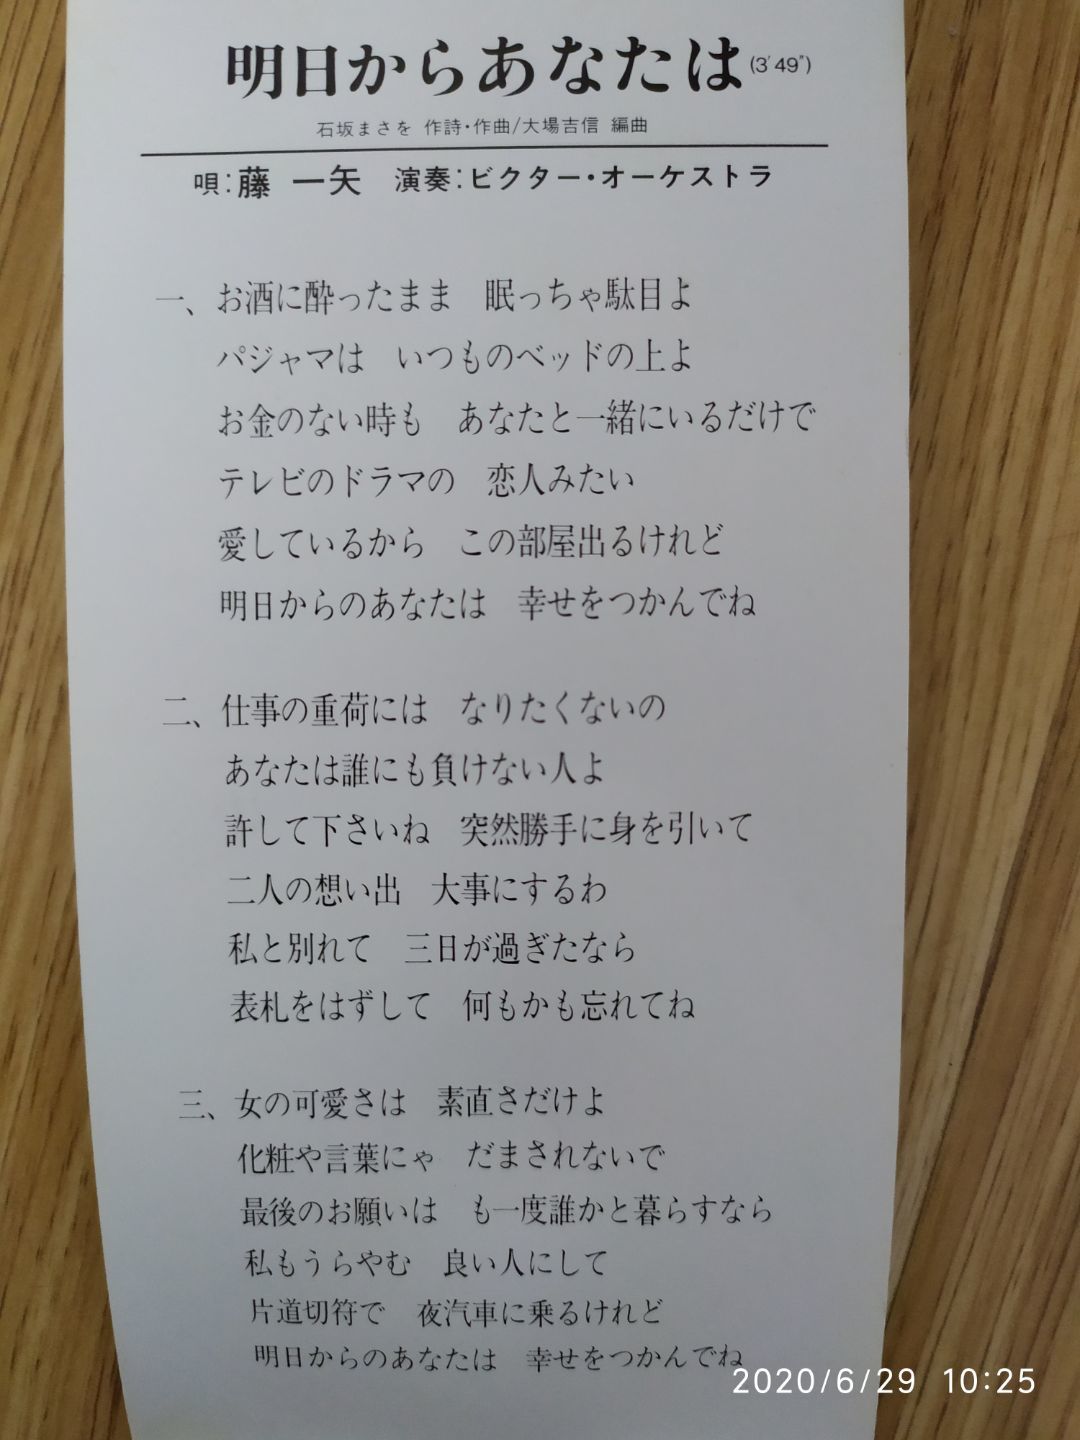 明日からあなたは(3'49")
石坂まさを 作詩・作曲/大場吉信 編曲
唄:藤 一矢 演奏:ビクター・オーケストラ
一、お酒に酔ったまま 眠っちゃ駄目よ
パジャマは いつものベッドの上よ
お金のない時も あなたと一緒にいるだけで
テレビのドラマの 恋人みたい
愛しているから この部屋出るけれど
明日からのあなたは 幸せをつかんでね
二、仕事の重荷には なりたくないの
あなたは誰にも負けない人よ
許して下さいね 突然勝手に身を引いて
二人の想い出 大事にするわ
私と別れて 三日が過ぎたなら
表札をはずして 何もかも忘れてね
三、女の可愛さは 素直さだけよ
化粧や言葉にゃ だまされないで
最後のお願いは も一度誰かと暮らすなら
私もうらやむ 良い人にして
片道切符で 夜汽車に乗るけれど
明日からのあなたは 幸せをつかんでね
2020/6/29 10:25